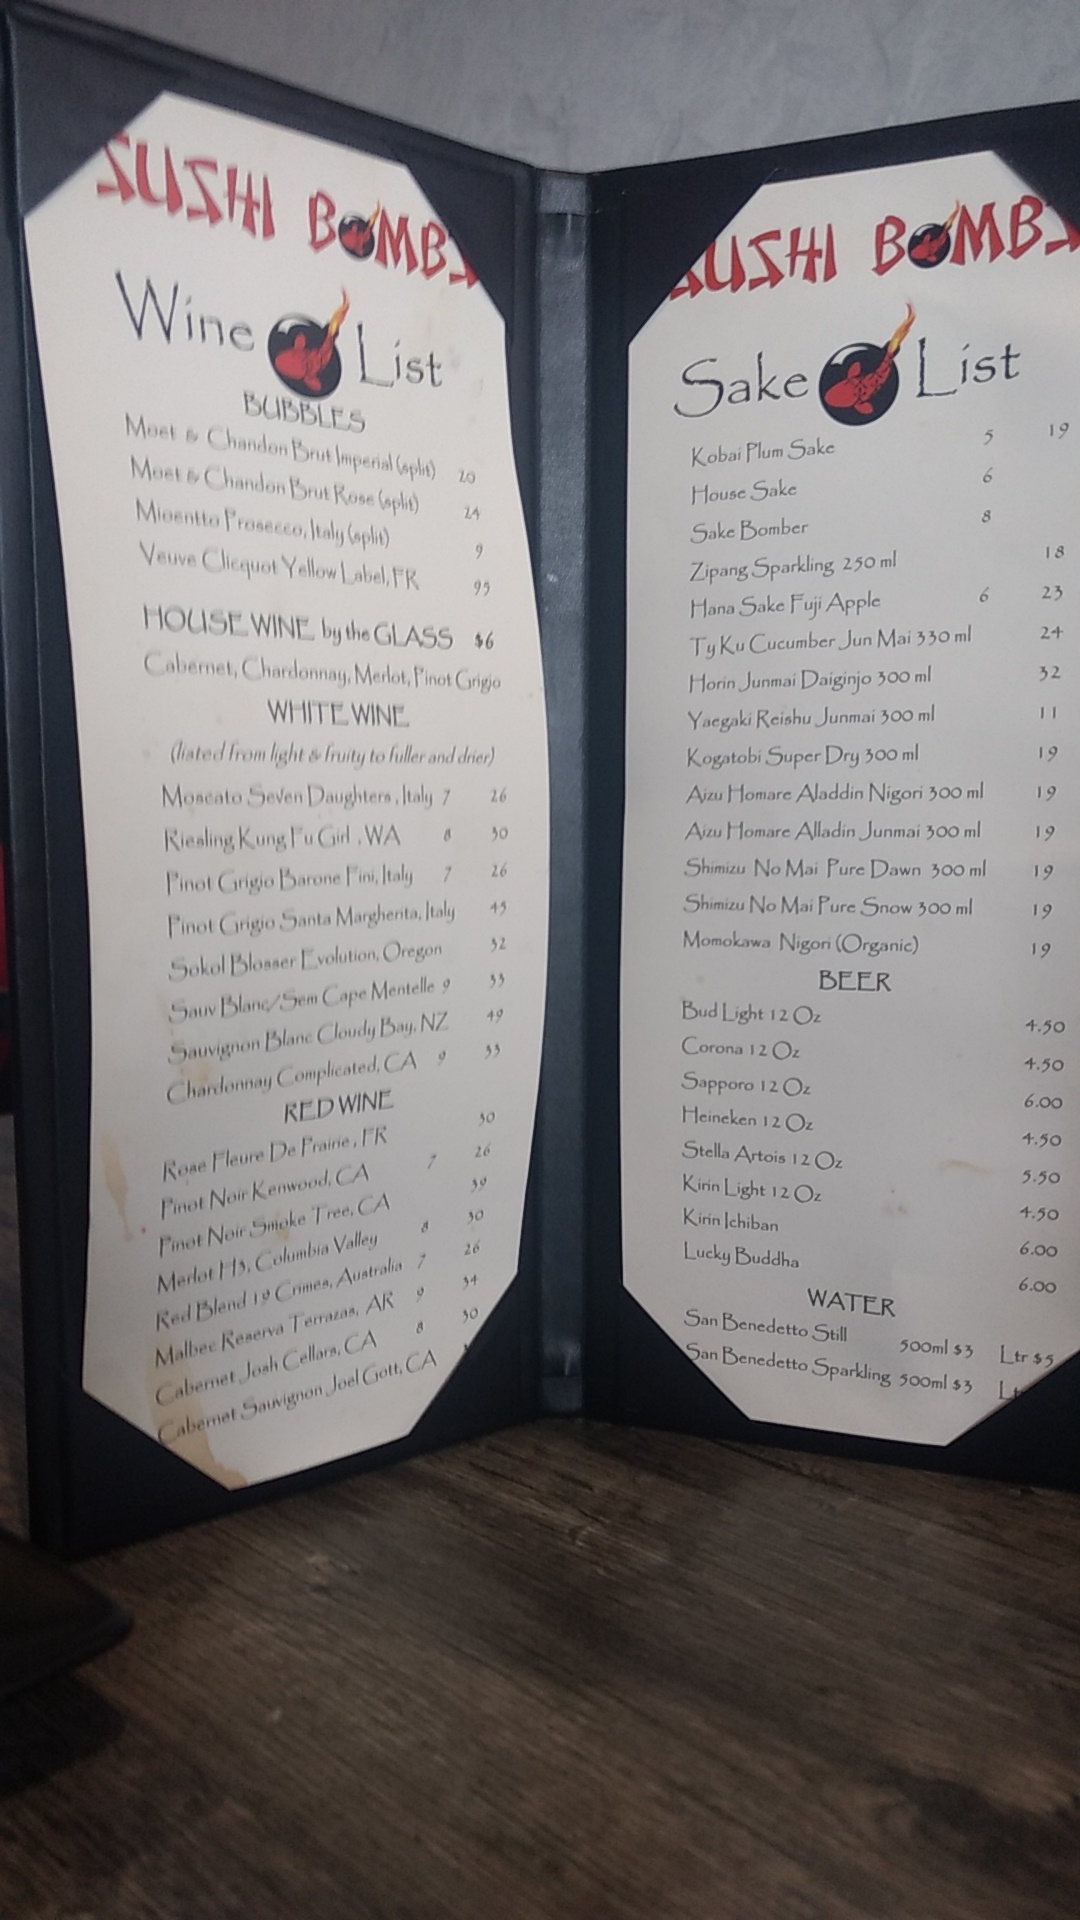 SUSHI BOMBS
Wine List
BUBBLES
Moet & Chandon Brut Imperial (split) 20
Moet & Chandon Brut Rose (split) 24
Mioentto Prosecco, Italy (split) 9
Veuve Clicquot Yellow Label, FR 95
HOUSE WINE by the GLASS $6
Cabernet, Chardonnay, Merlot, Pinot Grigio
WHITE WINE
(listed from light & fruity to fuller and drier)
Moscato Seven Daughters, Italy 7 26
Riesling Kung Fu Girl, WA 8 30
Pinot Grigio Barone Fini, Italy 7 26
Pinot Grigio Santa Margherita, Italy 45
Sokol Blosser Evolution, Oregon 32
Sauv Blanc/Sem Cape Mentelle 9 33
Sauvignon Blanc Cloudy Bay, NZ 49
Chardonnay Complicated, CA 9 33
RED WINE
Rose Fleure De Prairie, FR 30
Pinot Noir Kenwood, CA 7 26
Pinot Noir Smoke Tree, CA 39
Merlot H3, Columbia Valley 8 30
Red Blend 19 Crimes, Australia 7 26
Malbec Reserva Terrazas, AR 9 34
Cabernet Josh Cellars, CA 8 30
Cabernet Sauvignon Joel Gott, CA
SUSHI BOMBS
Sake List
Kobai Plum Sake 5 19
House Sake 6
Sake Bomber 8
Zipang Sparkling 250 ml 18
Hana Sake Fuji Apple 6 23
Ty Ku Cucumber Jun Mai 330 ml 24
Horin Junmai Daiginjo 300 ml 32
Yaegaki Reishu Junmai 300 ml 11
Kogatobi Super Dry 300 ml 19
Aizu Homare Aladdin Nigori 300 ml 19
Aizu Homare Alladin Junmai 300 ml 19
Shimizu No Mai Pure Dawn 300 ml 19
Shimizu No Mai Pure Snow 300 ml 19
Momokawa Nigori (Organic) 19
BEER
Bud Light 12 Oz 4.50
Corona 12 Oz 4.50
Sapporo 12 Oz 6.00
Heineken 12 Oz 4.50
Stella Artois 12 Oz 5.50
Kirin Light 12 Oz 4.50
Kirin Ichiban 6.00
Lucky Buddha 6.00
WATER
San Benedetto Still 500ml $3 Ltr $5
San Benedetto Sparkling 500ml $3